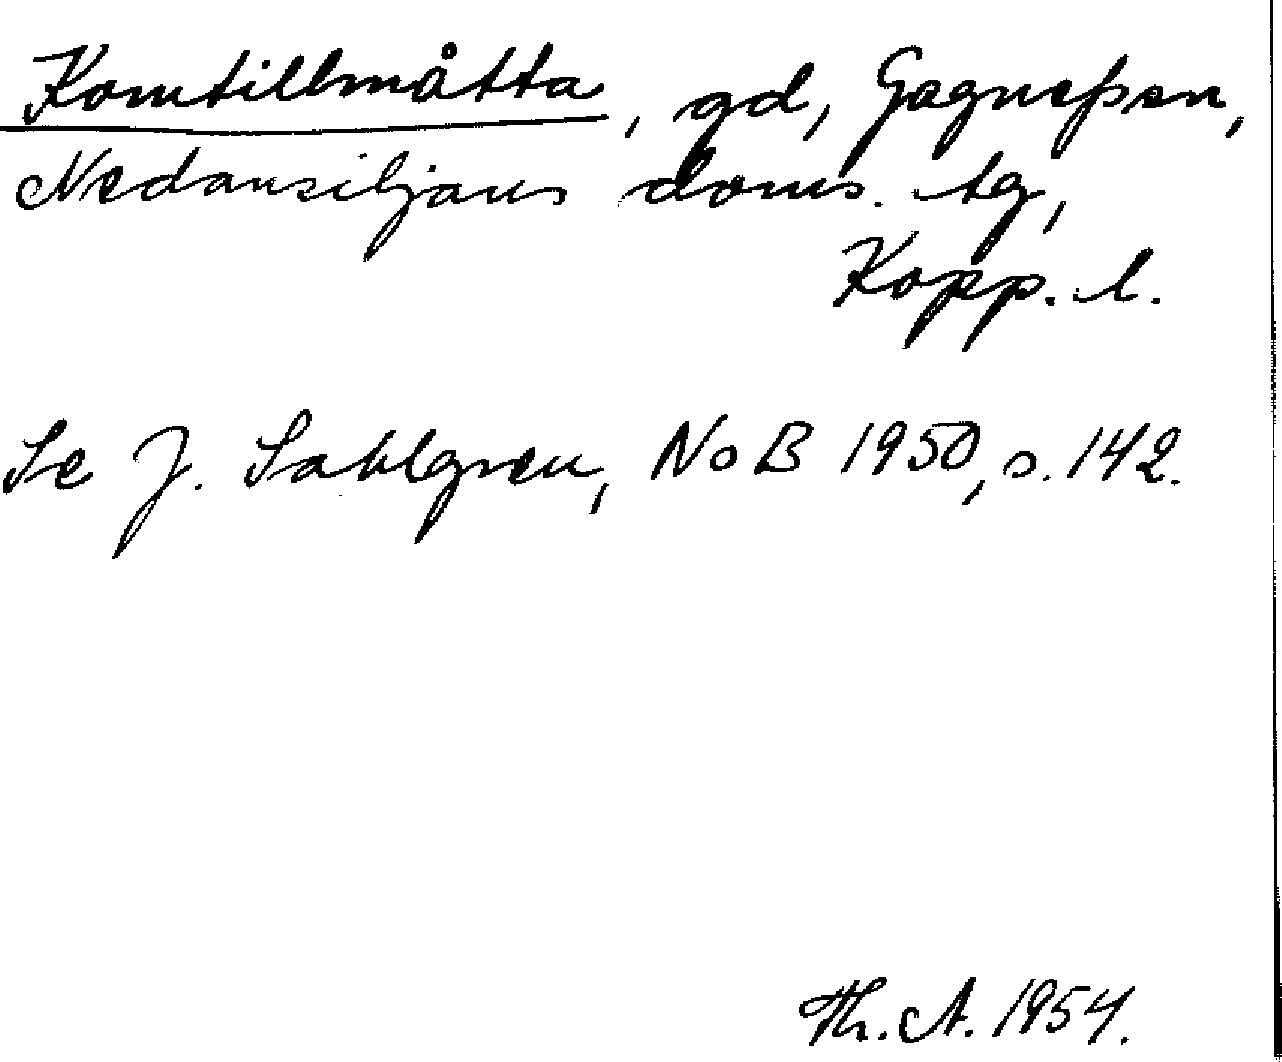 Komtillmåtta, gd, Gagnefs sn,
Nedansiljans doms. tg,
Kopp. l.
Se J. Sahlgren, NoB 1950, s. 142.
Th. A. 1954.